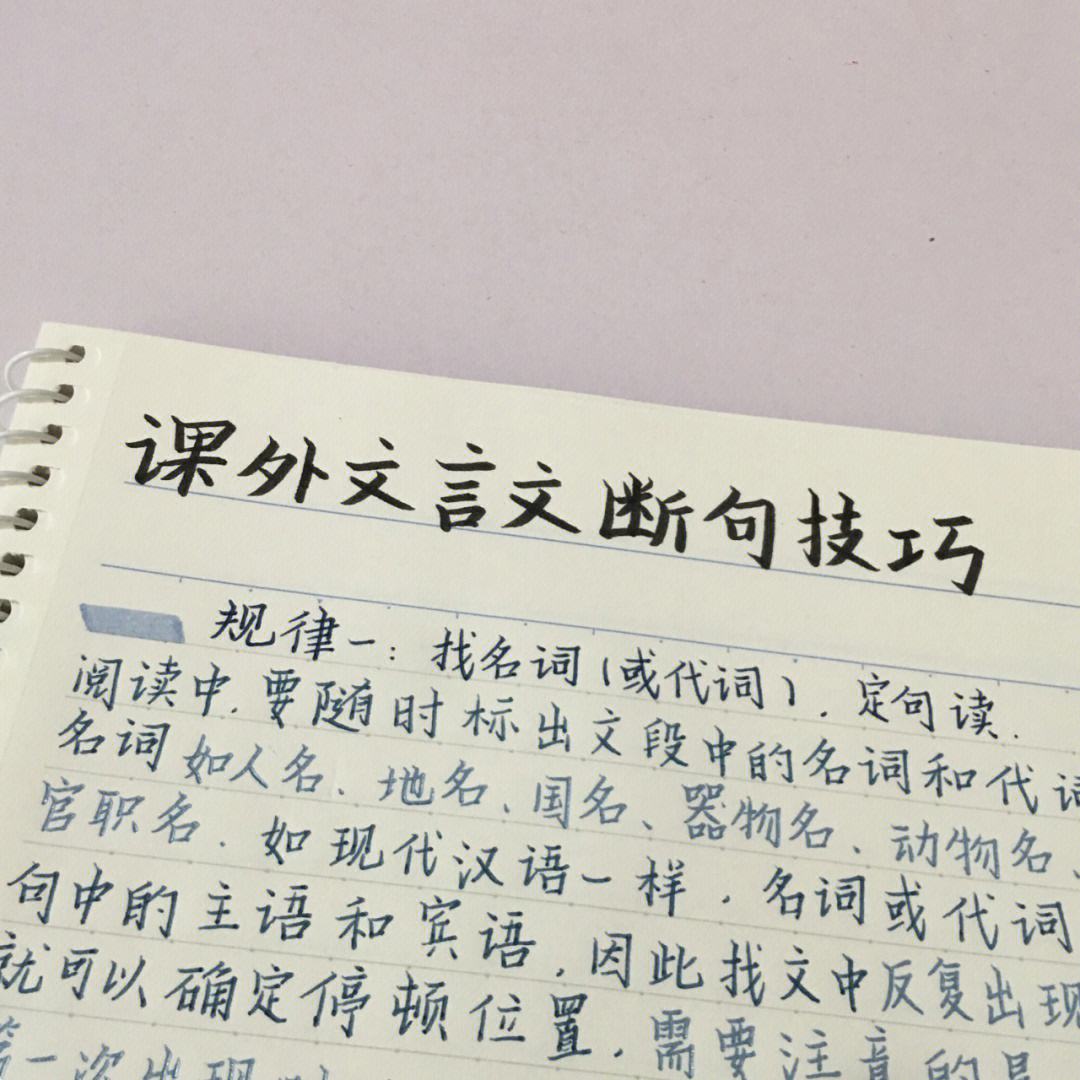 课外文言文断句技巧
规律一：找名词（或代词），定句读.
阅读中.要随时标出文段中的名词和代词
名词如人名、地名、国名、器物名、动物名、
官职名.如现代汉语一样.名词或代词
句中的主语和宾语.因此找文中反复出现
就可以确定停顿位置.需要注意的是
第一次出现时